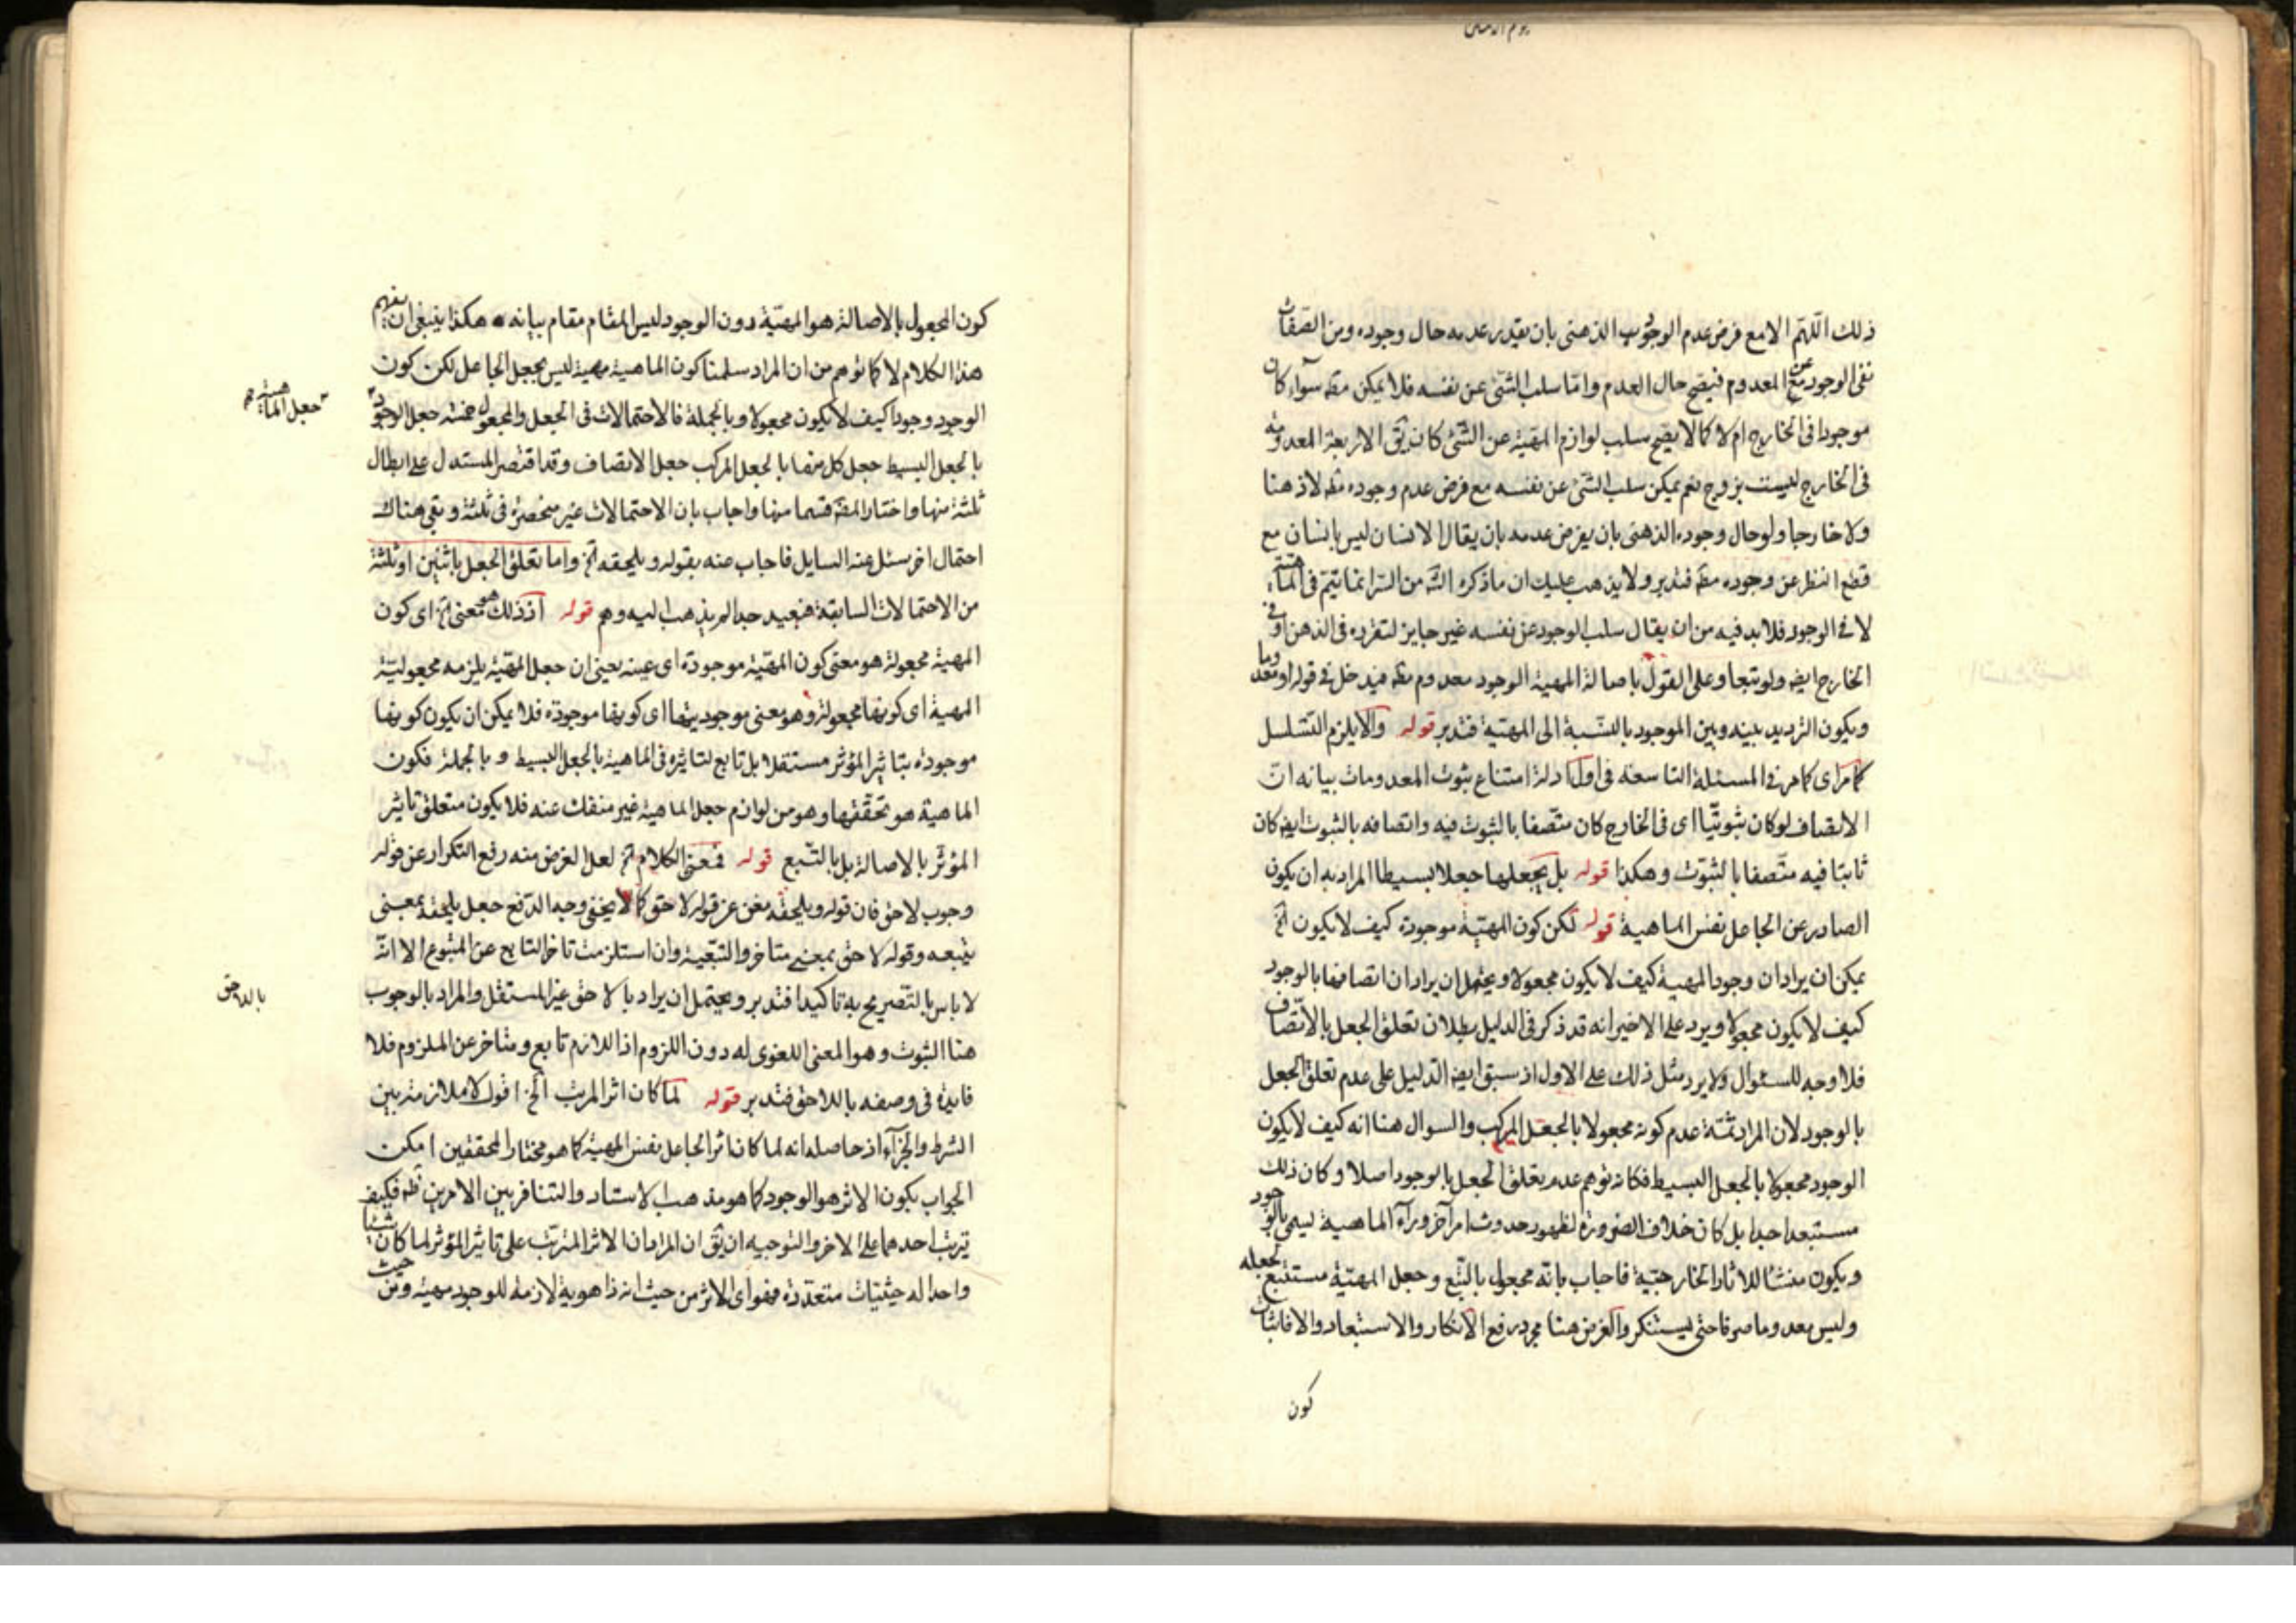 ذلك اللهم الا مع فرض عدم الوجود الذهنى بان يقدر عدمه حال وجوده ومن الصفات
نفى الوجود عن المعدوم فيصح حال العدم واما سلب الشئ عن نفسه فلا يمكن مطه سوآء كان
موجودا فى الخارج ام لا كما لا يصح سلب لوازم المهية عن الشئ كان يق الاربعة المعدومة
فى الخارج ليست بزوج نعم يمكن سلب الشئ عن نفسه مع فرض عدم وجوده مطه لا ذهنا
ولا خارجا ولو حال وجوده الذهنى بان يفرض عدمه بان يقال الانسان ليس بانسان مع
قطع النظر عن وجوده مطه فتدبر ولا يذهب عليك ان ما ذكره الش من السر انما يتم فى الماهية
لا فى الوجود فلا بد فيه من ان يقال سلب الوجود عن نفسه غير جايز لتقرره فى الذهن او فى
الخارج ايضه ولو تبعا وعلى القول باصالة المهية الوجود معدوم مطه فيدخل فى قوله او معدوما
ويكون الترديد بينه وبين الموجود بالنسبة الى المهية فتدبر قوله والا يلزم التسلسل
كما مر اى كما مر فى المسئلة التاسعة فى اول ادلة امتناع ثبوت المعدومات بيانه ان
الاتصاف لو كان ثبوتيا اى فى الخارج كان متصفا بالثبوت فيه واتصافه بالثبوت ايضه كان
ثابتا فيه متصفا بالثبوت وهكذا قوله بل يجعلها جعلا بسيطا المراد به ان يكون
الصادر عن الجاعل نفس الماهية قوله لكن كون المهية موجودة كيف لا يكون آه
يمكن ان يراد ان وجود المهية كيف لا يكون مجعولا ويحتمل ان يراد ان اتصافها بالوجود
كيف لا يكون مجعولا ويرد على الاخير انه قد ذكر فى الدليل بطلان تعلق الجعل بالاتصاف
فلا وجه للسئوال ولا يرد مثل ذلك على الاول اذ سبق ايضه الدليل على عدم تعلق الجعل
بالوجود لان المراد ثمة عدم كونه مجعولا بالجعل المركب والسوال هنا انه كيف لا يكون
الوجود مجعولا بالجعل البسيط فكانه توهم عدم تعلق الجعل بالوجود اصلا وكان ذلك
مستبعدا جدا بل كان خلاف الضرورة لظهور حدوث امر آخر ورآء الماهية ليسمى بالوجود
ويكون منشأ للاثار الخارجية فاجاب بانه مجعول بالتبع وجعل المهية مستتبع لجعله
وليس معدوما صرفا حتى يستنكر والغرض هنا مجرد رفع الانكار والاستبعاد والا فاثبات
كون
كون المجعول بالاصالة هو المهية دون الوجود ليس المقام مقام بيانه هكذا ينبغى ان يفهم
هذا الكلام لا كما توهم من ان المراد سلمنا كون الماهية مهية ليس بجعل الجاعل لكن كون
الوجود وجودا كيف لا يكون مجعولا وبالجملة فالاحتمالات فى الجعل والمجعول خمسة جعل الوجود
جعل الماهية
بالجعل البسيط جعل كل منها بالجعل المركب جعل الاتصاف وقد اقتصر المستدل على ابطال
ثلثة منها واختار المصه قسما منها واجاب بان الاحتمالات غير منحصرة فى ثلثة وبقى هناك
احتمال اخر سئل عنه السايل فاجاب عنه بقوله ويلحقه آه واما تعلق الجعل باثنين او ثلثة
من الاحتمالات السابقة فبعيد جدا لم يذهب اليه وهم قوله اذ ذلك هو معنى آه اى كون
المهية مجعولة هو معنى كون المهية موجودة اى عينه يعنى ان جعل المهية يلزمه مجعولية
المهية اى كونها مجعولة وهو معنى موجوديتها اى كونها موجودة فلا يمكن ان يكون كونها
موجودة بتاثير المؤثر مستقلا بل تابع لتاثيره فى الماهية بالجعل البسيط وبالجملة فكون
الماهية هو تحققها وهو من لوازم جعل الماهية غير منفك عنه فلا يكون متعلق تاثير
المؤثر بالاصالة بل بالتبع قوله فمعنى الكلام آه لعل الغرض منه رفع التكرار عن قوله
وجوب لاحق فان قوله ويلحقه مغن عن قوله لاحق كما لا يخفى وجه الدفع جعل يلحقه بمعنى
يتبعه وقوله لاحق بمعنى متاخر والتبعية وان استلزمت تاخر التابع عن المتبوع الا انه
لا باس بالتصريح به تاكيدا فتدبر ويحتمل ان يراد بالاحق غير المستقل والمراد بالوجوب
باللاحق
هنا الثبوت وهو المعنى اللغوى له دون اللزوم اذ اللازم تابع ومتاخر عن الملزوم فلا
فايدة فى وصفه باللاحق فتدبر قوله لما كان اثر المرتب الخ اقول لا ملازمة بين
الشرط والجزآء اذ حاصله انه لما كان اثر الجاعل نفس المهية كما هو مختار المحققين امكن
الجواب بكون الاثر هو الوجود كما هو مذهب الاستاد والتنافر بين الامرين ظه فكيف
يترتب احدهما على الاخر والتوجيه ان يق ان المراد ان الاثر المترتب على تاثير المؤثر لما كان شيئا
واحدا له حيثيات متعددة فهو اى الاثر من حيث انه ذا هوية لازمة للوجود مهية ومن حيث